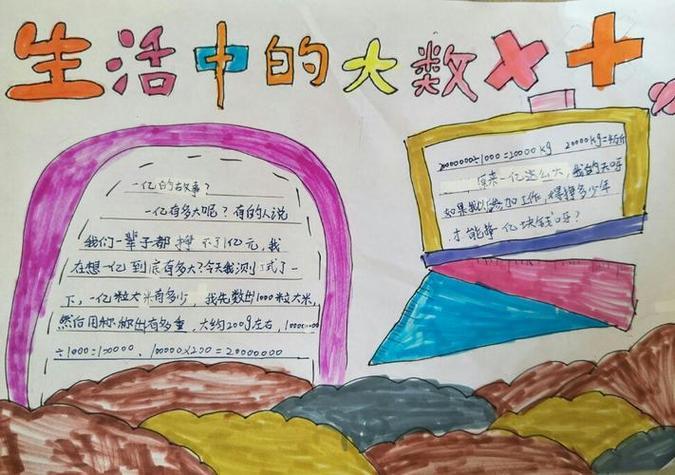 生活中的大数×+
一亿的故事?
一亿有多大呢?有的人说
我们一辈子都挣不了亿元,我
在想一亿到底有多大?今天我测试了一
下,一亿粒大米有多少,我先数出1000粒大米,
然后用称称出有多重,大约200g左右,
÷1000=100000,100000×200=20000000
20000000÷1000=20000kg 20000kg=4万斤
原来一亿这么大,我的天呀
如果我以后参加工作,得挣多少年
才能挣一亿块钱呀?